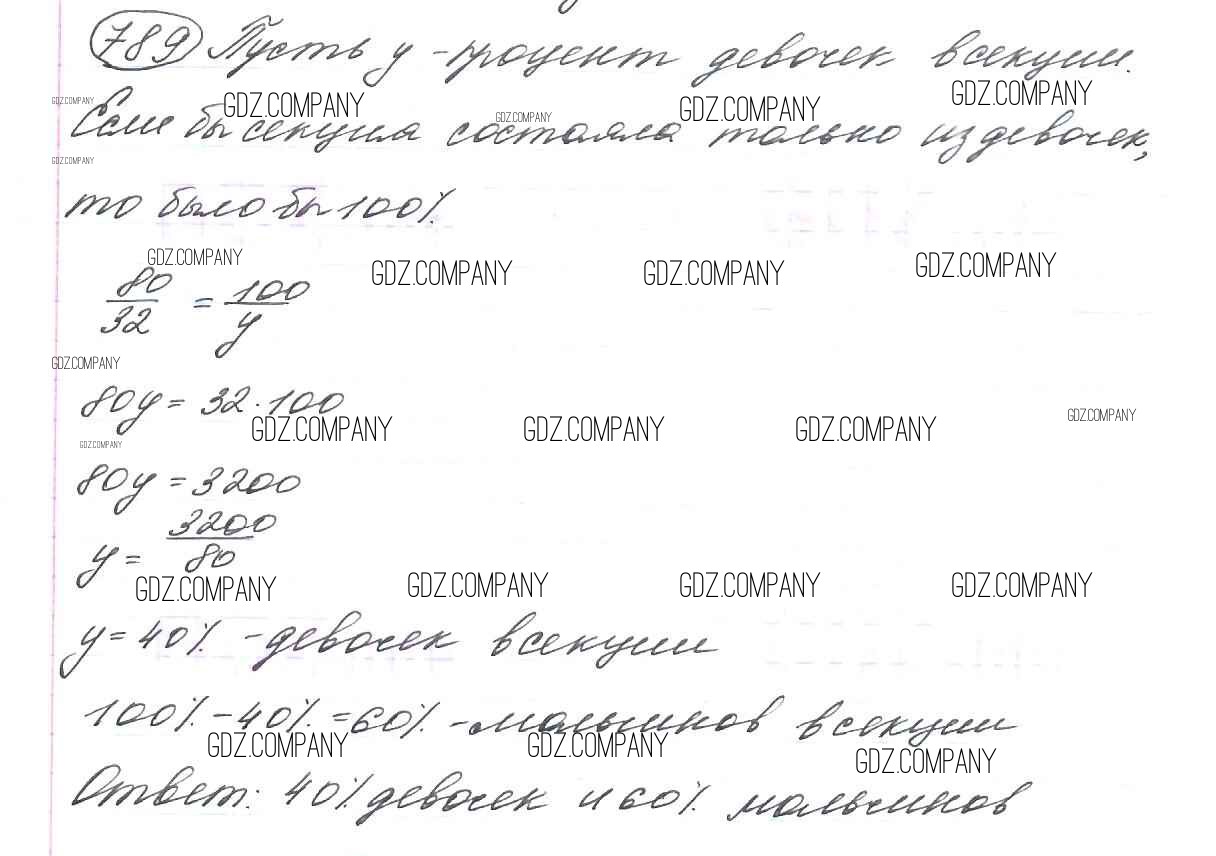 789 Пусть y - процент девочек в секции.
GDZ.COMPANY GDZ.COMPANY GDZ.COMPANY GDZ.COMPANY GDZ.COMPANY
Если бы секция состояла только из девочек,
GDZ.COMPANY
то было бы 100%.
GDZ.COMPANY GDZ.COMPANY GDZ.COMPANY GDZ.COMPANY
80/32 = 100/y
GDZ.COMPANY
80y = 32 · 100
GDZ.COMPANY GDZ.COMPANY GDZ.COMPANY GDZ.COMPANY
GDZ.COMPANY
80y = 3200
y = 3200/80
GDZ.COMPANY GDZ.COMPANY GDZ.COMPANY GDZ.COMPANY
y = 40% - девочек в секции
100% - 40% = 60% - мальчиков в секции
GDZ.COMPANY GDZ.COMPANY GDZ.COMPANY
Ответ: 40% девочек и 60% мальчиков